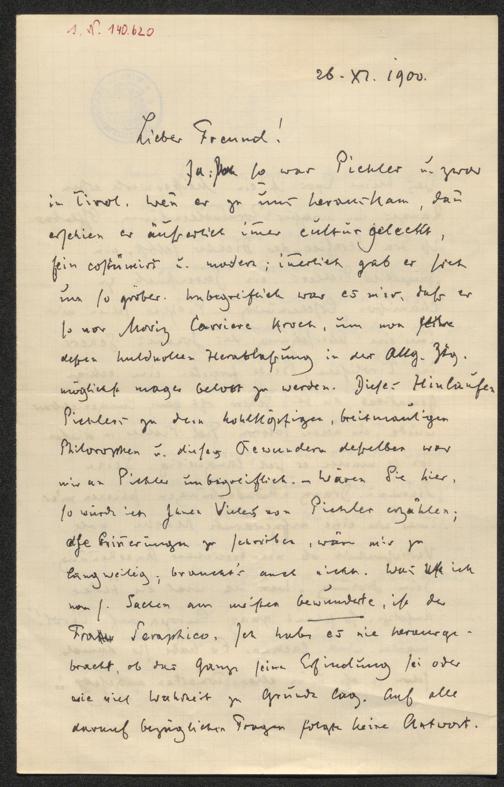 I. N. 140.620
26. XI. 1900.
Lieber Freund!
Ja, so war Pichler u. zwar
in Tirol. Wen̄ er zu uns herauskam, dan̄
erschien er äußerlich im̄er culturgeleckt,
fein costümirt u. modern; in̄erlich gab er sich
um so gröber. Unbegreiflich war es mir, daß er
so vor Moriz Carriere kroch, um von
dessen huldvollen Herablaßung in der Allg. Ztg.
möglichst mager belobt zu werden. Dieses Hinlaufen
Pichlers zu dem hohlköpfigen, breitmauligen
Philosophen u. dieses Bewundern desselben war
mir an Pichler unbegreiflich. – Wären Sie hier,
so würde ich Ihnen Vieles von Pichler erzählen;
alle Erin̄erungen zu schreiben, wäre mir zu
langweilig; braucht's auch nicht. Was ich
von s. Sachen am meisten bewunderte, ist der
Fra Seraphico. Ich habe es nie herausge-
bracht, ob das Ganze seine Erfindung sei oder
wie viel Wahrheit zu Grunde lag. Auf alle
darauf bezüglichen Fragen folgte keine Antwort.